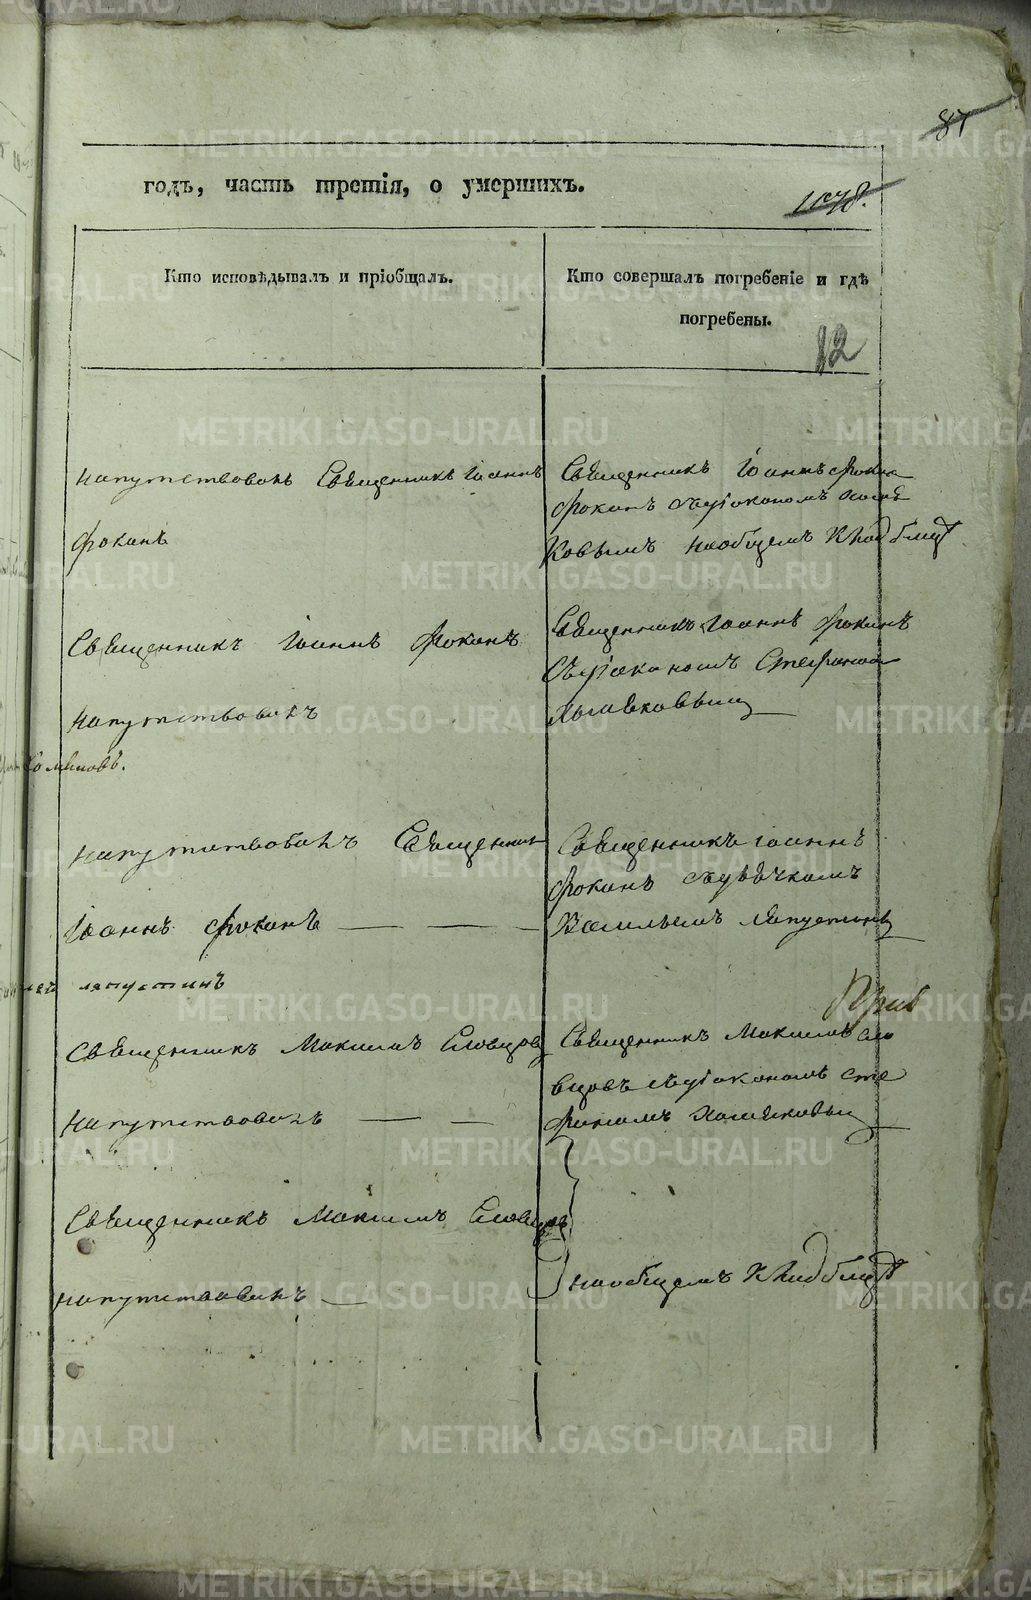 87
годъ, часть третія, о умершихъ.
1178.
Кто исповѣдывалъ и пріобщалъ.
Кто совершалъ погребеніе и гдѣ
погребены.
12
напутствовалъ Священникъ Іоаннъ
Фокинъ
Священникъ Іоаннъ Фокин
Фокинъ съ діакономъ
ковымъ наобщемъ кладбищѣ
Священникъ Іоаннъ Фокинъ
напутствовалъ
Священникъ Іоаннъ Фокинъ
съ діакономъ Стефаном
Хомяковымъ
напутствовалъ Священник
Іоаннъ Фокинъ
ляпустинъ
Священникъ Іоаннъ
Фокинъ съ дьячкомъ
Васильемъ Ляпустинымъ
Священникъ Максимъ Словцовъ
напутствовалъ
Священникъ Максимъ Сло
вцовъ съ діакономъ Сте
фаномъ Хомяковым
Священникъ Максимъ Словцовъ
напутствовалъ
наобщемъ кладбищѣ
METRIKI.GASO-URAL.RU